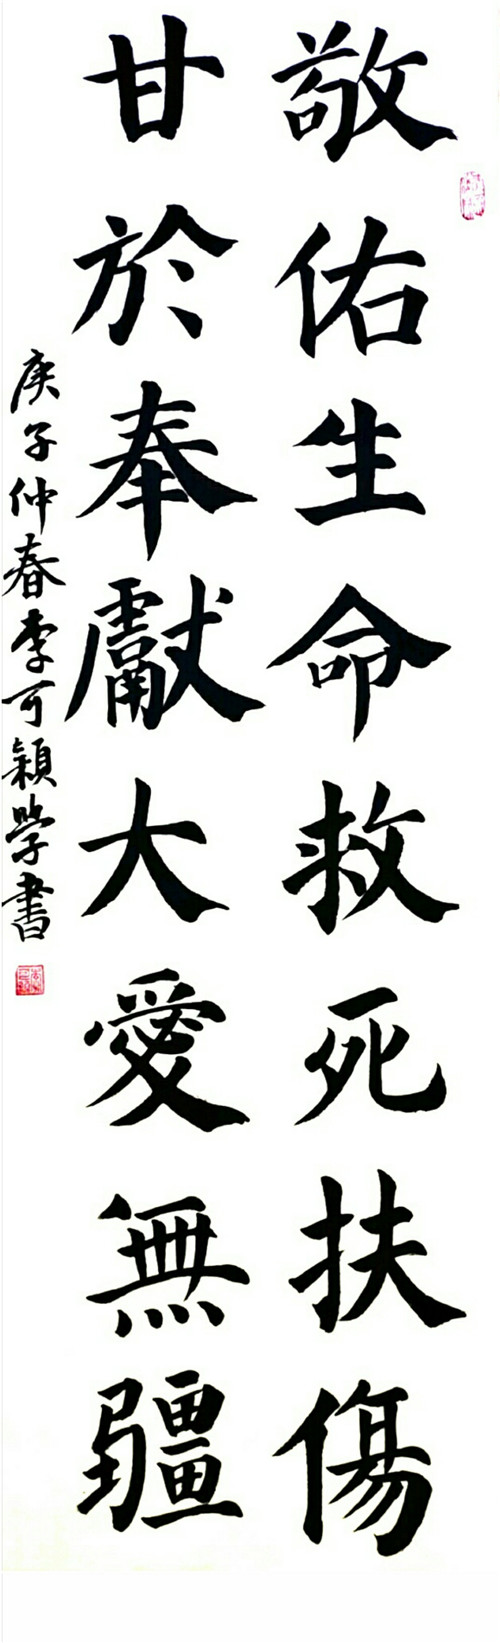 敬佑生命救死扶傷
甘於奉獻大愛無疆
庚子仲春李可穎學書